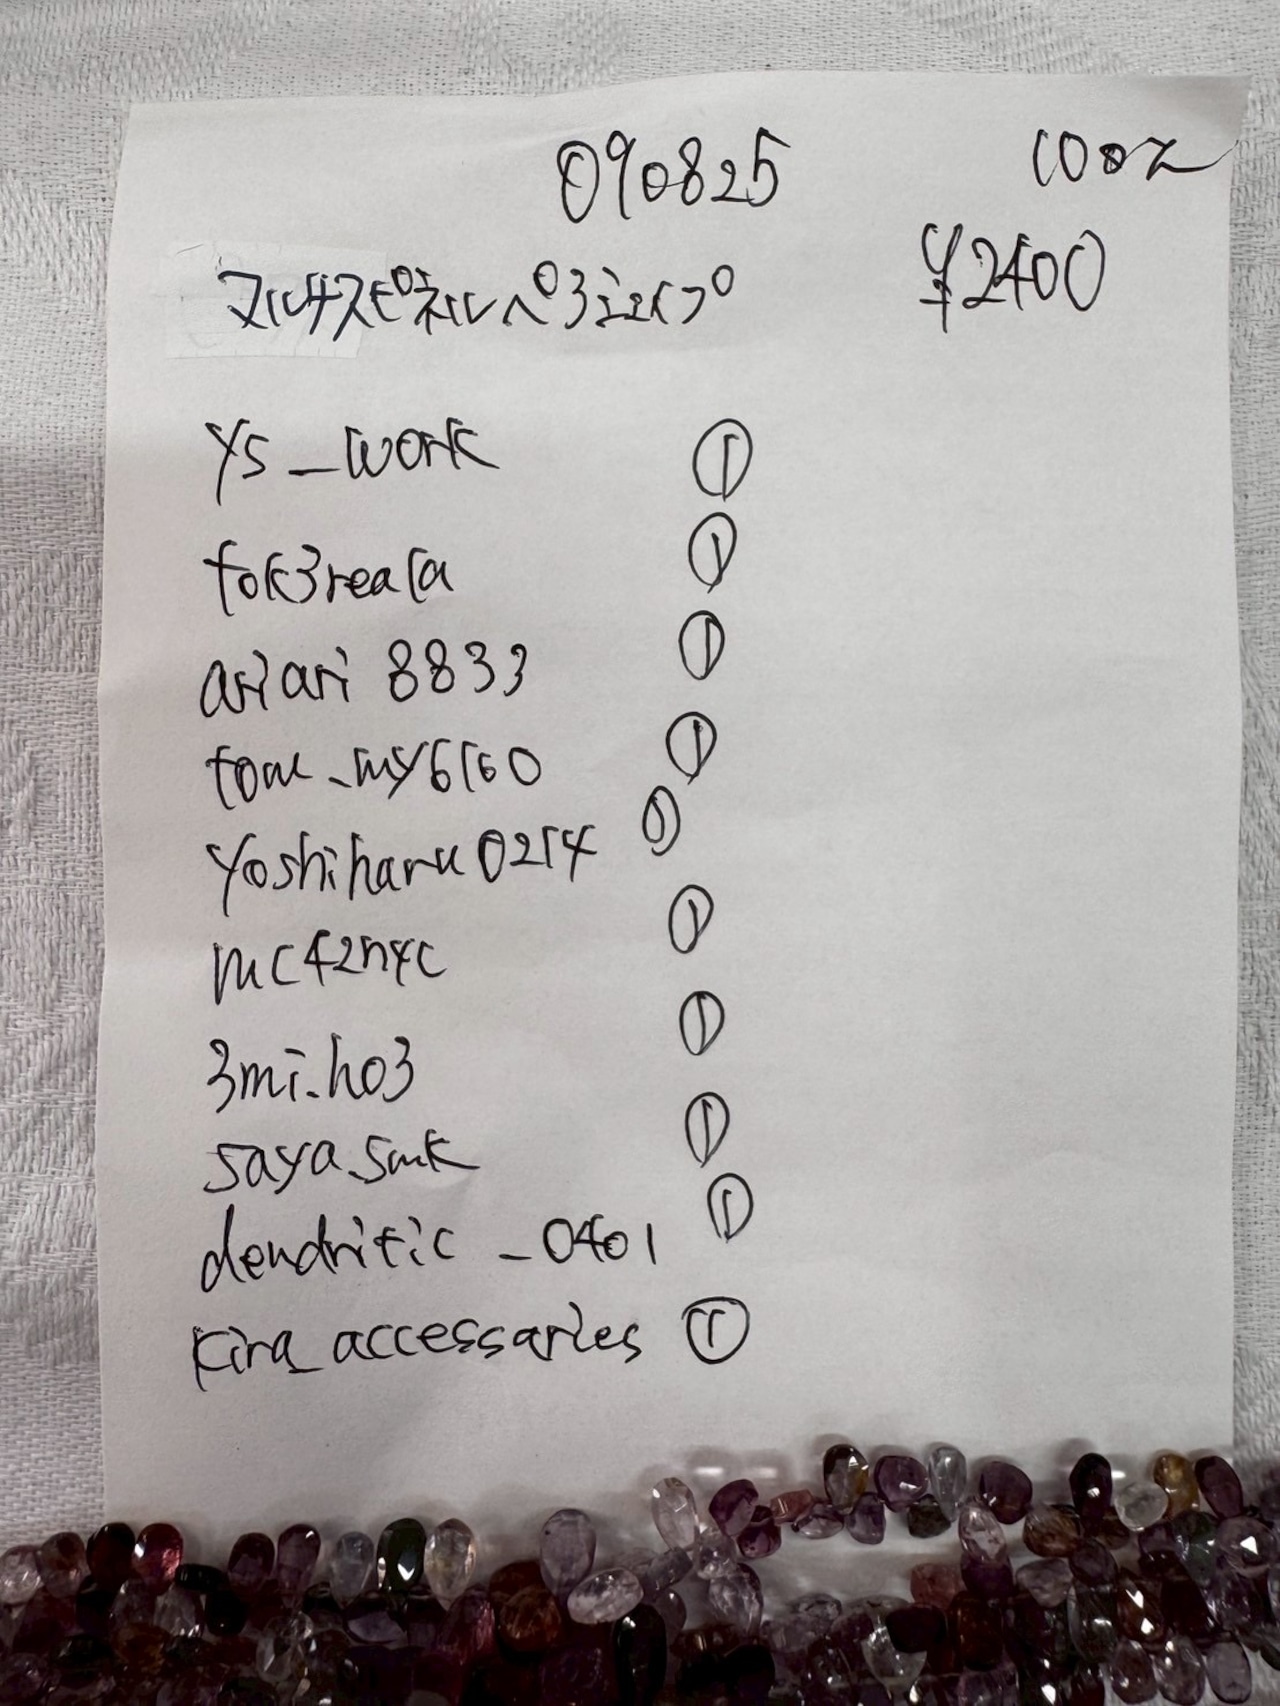 090825 100%
マルチスピネルペアシェイプ ¥2400
ys_work ①
tok3reala ①
ariari 8833 ①
tom_my6160 ①
yoshiharu0214 ①
mc42n4c ①
3mi.ho3 ①
saya.smk ①
dendritic_0401 ①
kira_accessaries ①